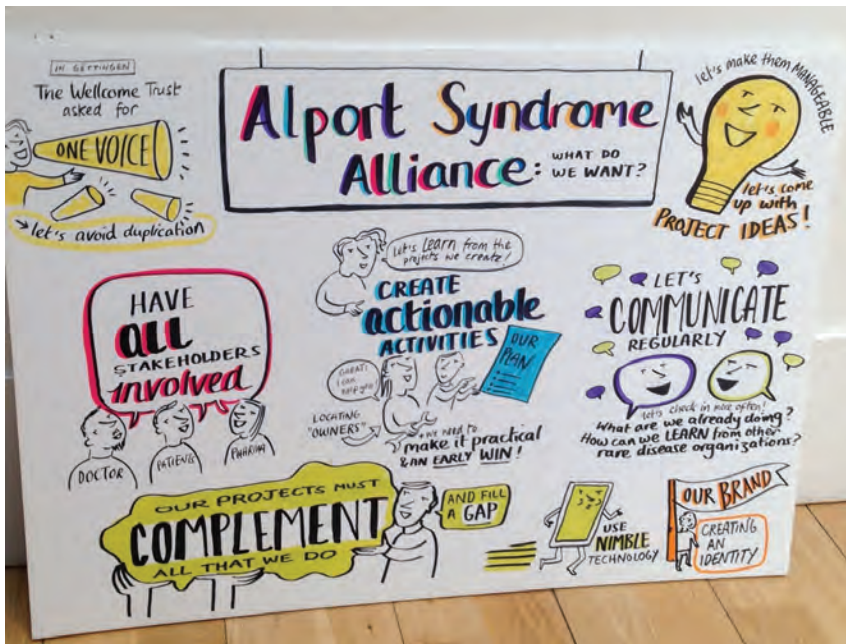 IN GÖTTINGEN
The Wellcome Trust
asked for
ONE VOICE
let's avoid duplication
Alport Syndrome
Alliance:
WHAT DO
WE WANT?
let's make them MANAGEABLE
let's come
up with
PROJECT IDEAS!
HAVE
ALL
STAKEHOLDERS
involved
DOCTOR
PATIENT
PHARMA
Let's LEARN from the
projects we create!
CREATE
actionable
ACTIVITIES
OUR
PLAN
GREAT!
I can
help you!
LOCATING
"OWNERS"
we need to
make it practical
& AN EARLY WIN!
LET'S
COMMUNICATE
REGULARLY
let's check in more often!
What are we already doing?
How can we LEARN from other
rare disease organizations?
OUR PROJECTS MUST
COMPLEMENT
ALL THAT WE DO
AND FILL
A GAP
USE
NIMBLE
TECHNOLOGY
OUR BRAND
CREATING
AN
IDENTITY